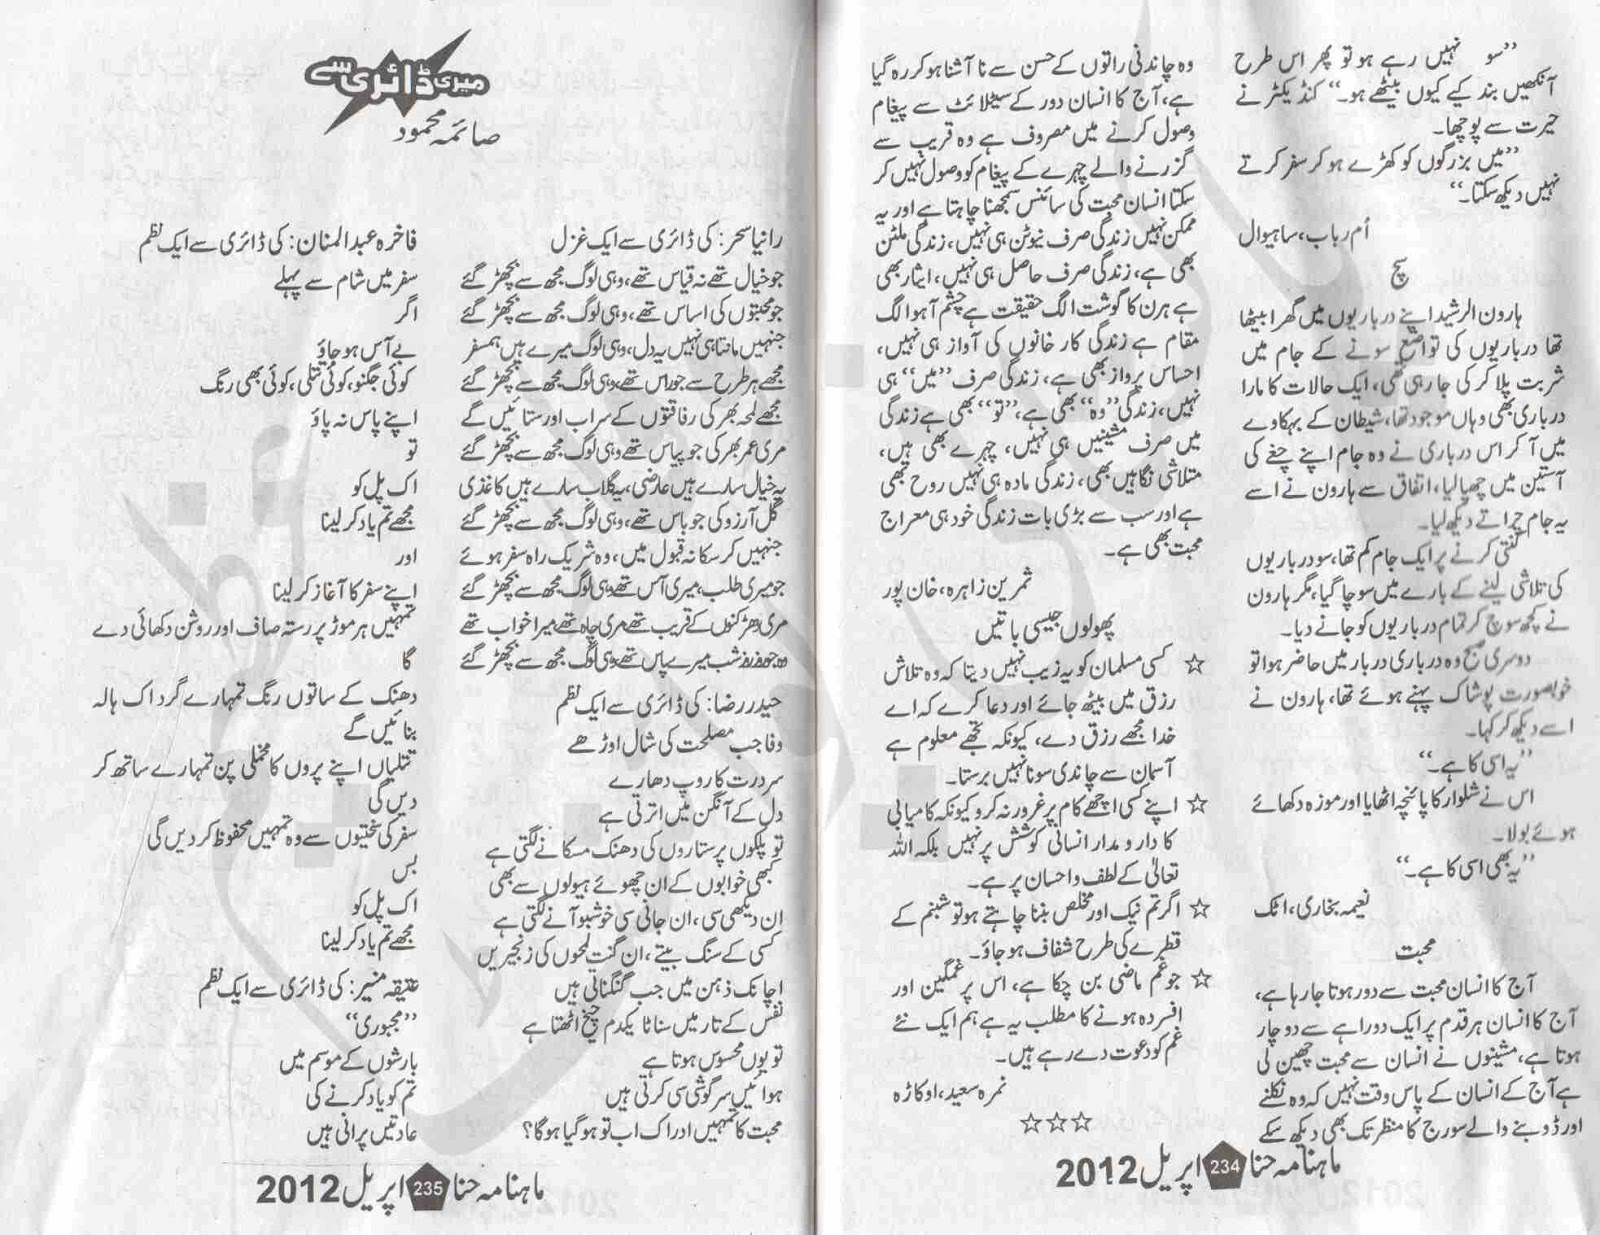 ”سو نہیں رہے ہو تو پھر اس طرح
آنکھیں بند کیے کیوں بیٹھے ہو۔“ کنڈیکٹر نے
حیرت سے پوچھا۔
”میں بزرگوں کو کھڑے ہو کر سفر کرتے
نہیں دیکھ سکتا۔“
اُم رباب، ساہیوال
سچ
ہارون الرشید اپنے درباریوں میں گھرا بیٹھا
تھا درباریوں کی تواضع سونے کے جام میں
شربت پلا کر کی جا رہی تھی، ایک حالات کا مارا
درباری بھی وہاں موجود تھا، شیطان کے بہکاوے
میں آ کر اس درباری نے وہ جام اپنے چغے کی
آستین میں چھپا لیا، اتفاق سے ہارون نے اسے
یہ جام چراتے دیکھ لیا۔
گنتی کرنے پر ایک جام کم تھا، سو درباریوں
کی تلاشی لینے کے بارے میں سوچا گیا، مگر ہارون
نے کچھ سوچ کر تمام درباریوں کو جانے دیا۔
دوسری صبح وہ درباری دربار میں حاضر ہوا تو
خوبصورت پوشاک پہنے ہوئے تھا، ہارون نے
اسے دیکھ کر کہا۔
”یہ اسی کا ہے۔“
اس نے شلوار کا پائنچہ اٹھایا اور موزہ دکھائے
ہوئے بولا۔
”یہ بھی اسی کا ہے۔“
نعیمہ بخاری، اٹک
محبت
آج کا انسان محبت سے دور ہوتا جا رہا ہے،
آج کا انسان ہر قدم پر ایک دوراہے سے دوچار
ہوتا ہے، مشینوں نے انسان سے محبت چھین لی
ہے آج کے انسان کے پاس وقت نہیں کہ وہ نکلنے
اور ڈوبنے والے سورج کا منظر تک بھی دیکھ سکے
وہ چاندنی راتوں کے حسن سے نا آشنا ہو کر رہ گیا
ہے، آج کا انسان دور کے سیٹلائٹ سے پیغام
وصول کرنے میں مصروف ہے وہ قریب سے
گزرنے والے چہرے کے پیغام کو وصول نہیں کر
سکتا انسان محبت کی سائنس سمجھنا چاہتا ہے اور یہ
ممکن نہیں زندگی صرف نیوٹن ہی نہیں، زندگی ملٹن
بھی ہے، زندگی صرف حاصل ہی نہیں، ایثار بھی
ہے ہرن کا گوشت الگ حقیقت ہے چشم آہو الگ
مقام ہے زندگی کارخانوں کی آواز ہی نہیں،
احساس پرواز بھی ہے، زندگی صرف ”میں“ ہی
نہیں، زندگی ”وہ“ بھی ہے، ”تو“ بھی ہے زندگی
میں صرف مشینیں ہی نہیں، چہرے بھی ہیں،
متلاشی نگاہیں بھی، زندگی مادہ ہی نہیں روح بھی
ہے اور سب سے بڑی بات زندگی خود ہی معراج
محبت بھی ہے۔
ثمرین زاہرہ، خان پور
پھولوں جیسی باتیں
☆ کسی مسلمان کو یہ زیب نہیں دیتا کہ وہ تلاش
رزق میں بیٹھ جائے اور دعا کرے کہ اے
خدا مجھے رزق دے، کیونکہ تجھے معلوم ہے
آسمان سے چاندی سونا نہیں برستا۔
☆ اپنے کسی اچھے کام پر غرور نہ کرو کیونکہ کامیابی
کا دارو مدار انسانی کوشش پر نہیں بلکہ اللہ
تعالیٰ کے لطف و احسان پر ہے۔
☆ اگر تم نیک اور مخلص بننا چاہتے ہو تو شبنم کے
قطرے کی طرح شفاف ہو جاؤ۔
☆ جو غم ماضی بن چکا ہے، اس پر غمگین اور
افسردہ ہونے کا مطلب یہ ہے ہم ایک نئے
غم کو دعوت دے رہے ہیں۔
نمرہ سعید، اوکاڑہ
☆☆☆
ماہنامہ حنا 234 اپریل 2012
میری ڈائری سے
صائمہ محمود
رانیا سحر: کی ڈائری سے ایک غزل
جو خیال تھے نہ قیاس تھے، وہی لوگ مجھ سے بچھڑ گئے
جو محبتوں کی اساس تھے، وہی لوگ مجھ سے بچھڑ گئے
جنہیں مانتا ہی نہیں یہ دل، وہی لوگ میرے ہیں ہمسفر
مجھے ہر طرح سے جو راس تھے، وہی لوگ مجھ سے بچھڑ گئے
مجھے لمحہ بھر کی رفاقتوں کے سراب اور ستائیں گے
مری عمر بھر کی جو پیاس تھے وہی لوگ مجھ سے بچھڑ گئے
یہ خیال سارے ہیں عارضی، یہ گلاب سارے ہیں کاغذی
گل آرزو کی جو باس تھے، وہی لوگ مجھ سے بچھڑ گئے
جنہیں کر سکا نہ قبول میں، وہ شریک راہ سفر ہوئے
جو مری طلب، میری آس تھے وہی لوگ مجھ سے بچھڑ گئے
مری دھڑکنوں کے قریب تھے مری چاہ تھے میرا خواب تھے
وہ جو روز و شب میرے پاس تھے، وہی لوگ مجھ سے بچھڑ گئے
حیدر رضا: کی ڈائری سے ایک نظم
وفا جب مصلحت کی شال اوڑھے
سرد رت کا روپ دھارے
دل کے آنگن میں اترتی ہے
تو پلکوں پر ستاروں کی دھنک مسکانے لگتی ہے
کبھی خوابوں کے ان چھوئے ہیولوں سے بھی
ان دیکھی سی، ان جانی سی خوشبو آنے لگتی ہے
کسی کے سنگ بیتے، ان گنت لمحوں کی زنجیریں
اچانک ذہن میں جب گنگناتی ہیں
نفس کے تار میں سناٹا یکدم چیخ اٹھتا ہے
تو یوں محسوس ہوتا ہے
ہوائیں سرگوشی سی کرتی ہیں
محبت کا تمہیں ادراک اب تو ہو گیا ہوگا؟
فاخرہ عبدالمنان: کی ڈائری سے ایک نظم
سفر میں شام سے پہلے
اگر
بے آس ہو جاؤ
کوئی جگنو، کوئی تتلی، کوئی بھی رنگ
اپنے پاس نہ پاؤ
تو
اک پل کو
مجھے تم یاد کر لینا
اور
اپنے سفر کا آغاز کر لینا
تمہیں ہر موڑ پر رستہ صاف اور روشن دکھائی دے
گا
دھنک کے ساتوں رنگ تمہارے گرد اک ہالہ
بنائیں گے
تتلیاں اپنے پروں کا مخملی پن تمہارے ساتھ کر
دیں گی
سفر کی سختیوں سے وہ تمہیں محفوظ کر دیں گی
بس
اک پل کو
مجھے تم یاد کر لینا
عتیقہ منیر: کی ڈائری سے ایک نظم
”مجبوری“
بارشوں کے موسم میں
تم کو یاد کرنے کی
عادتیں پرانی ہیں
ماہنامہ حنا 235 اپریل 2012